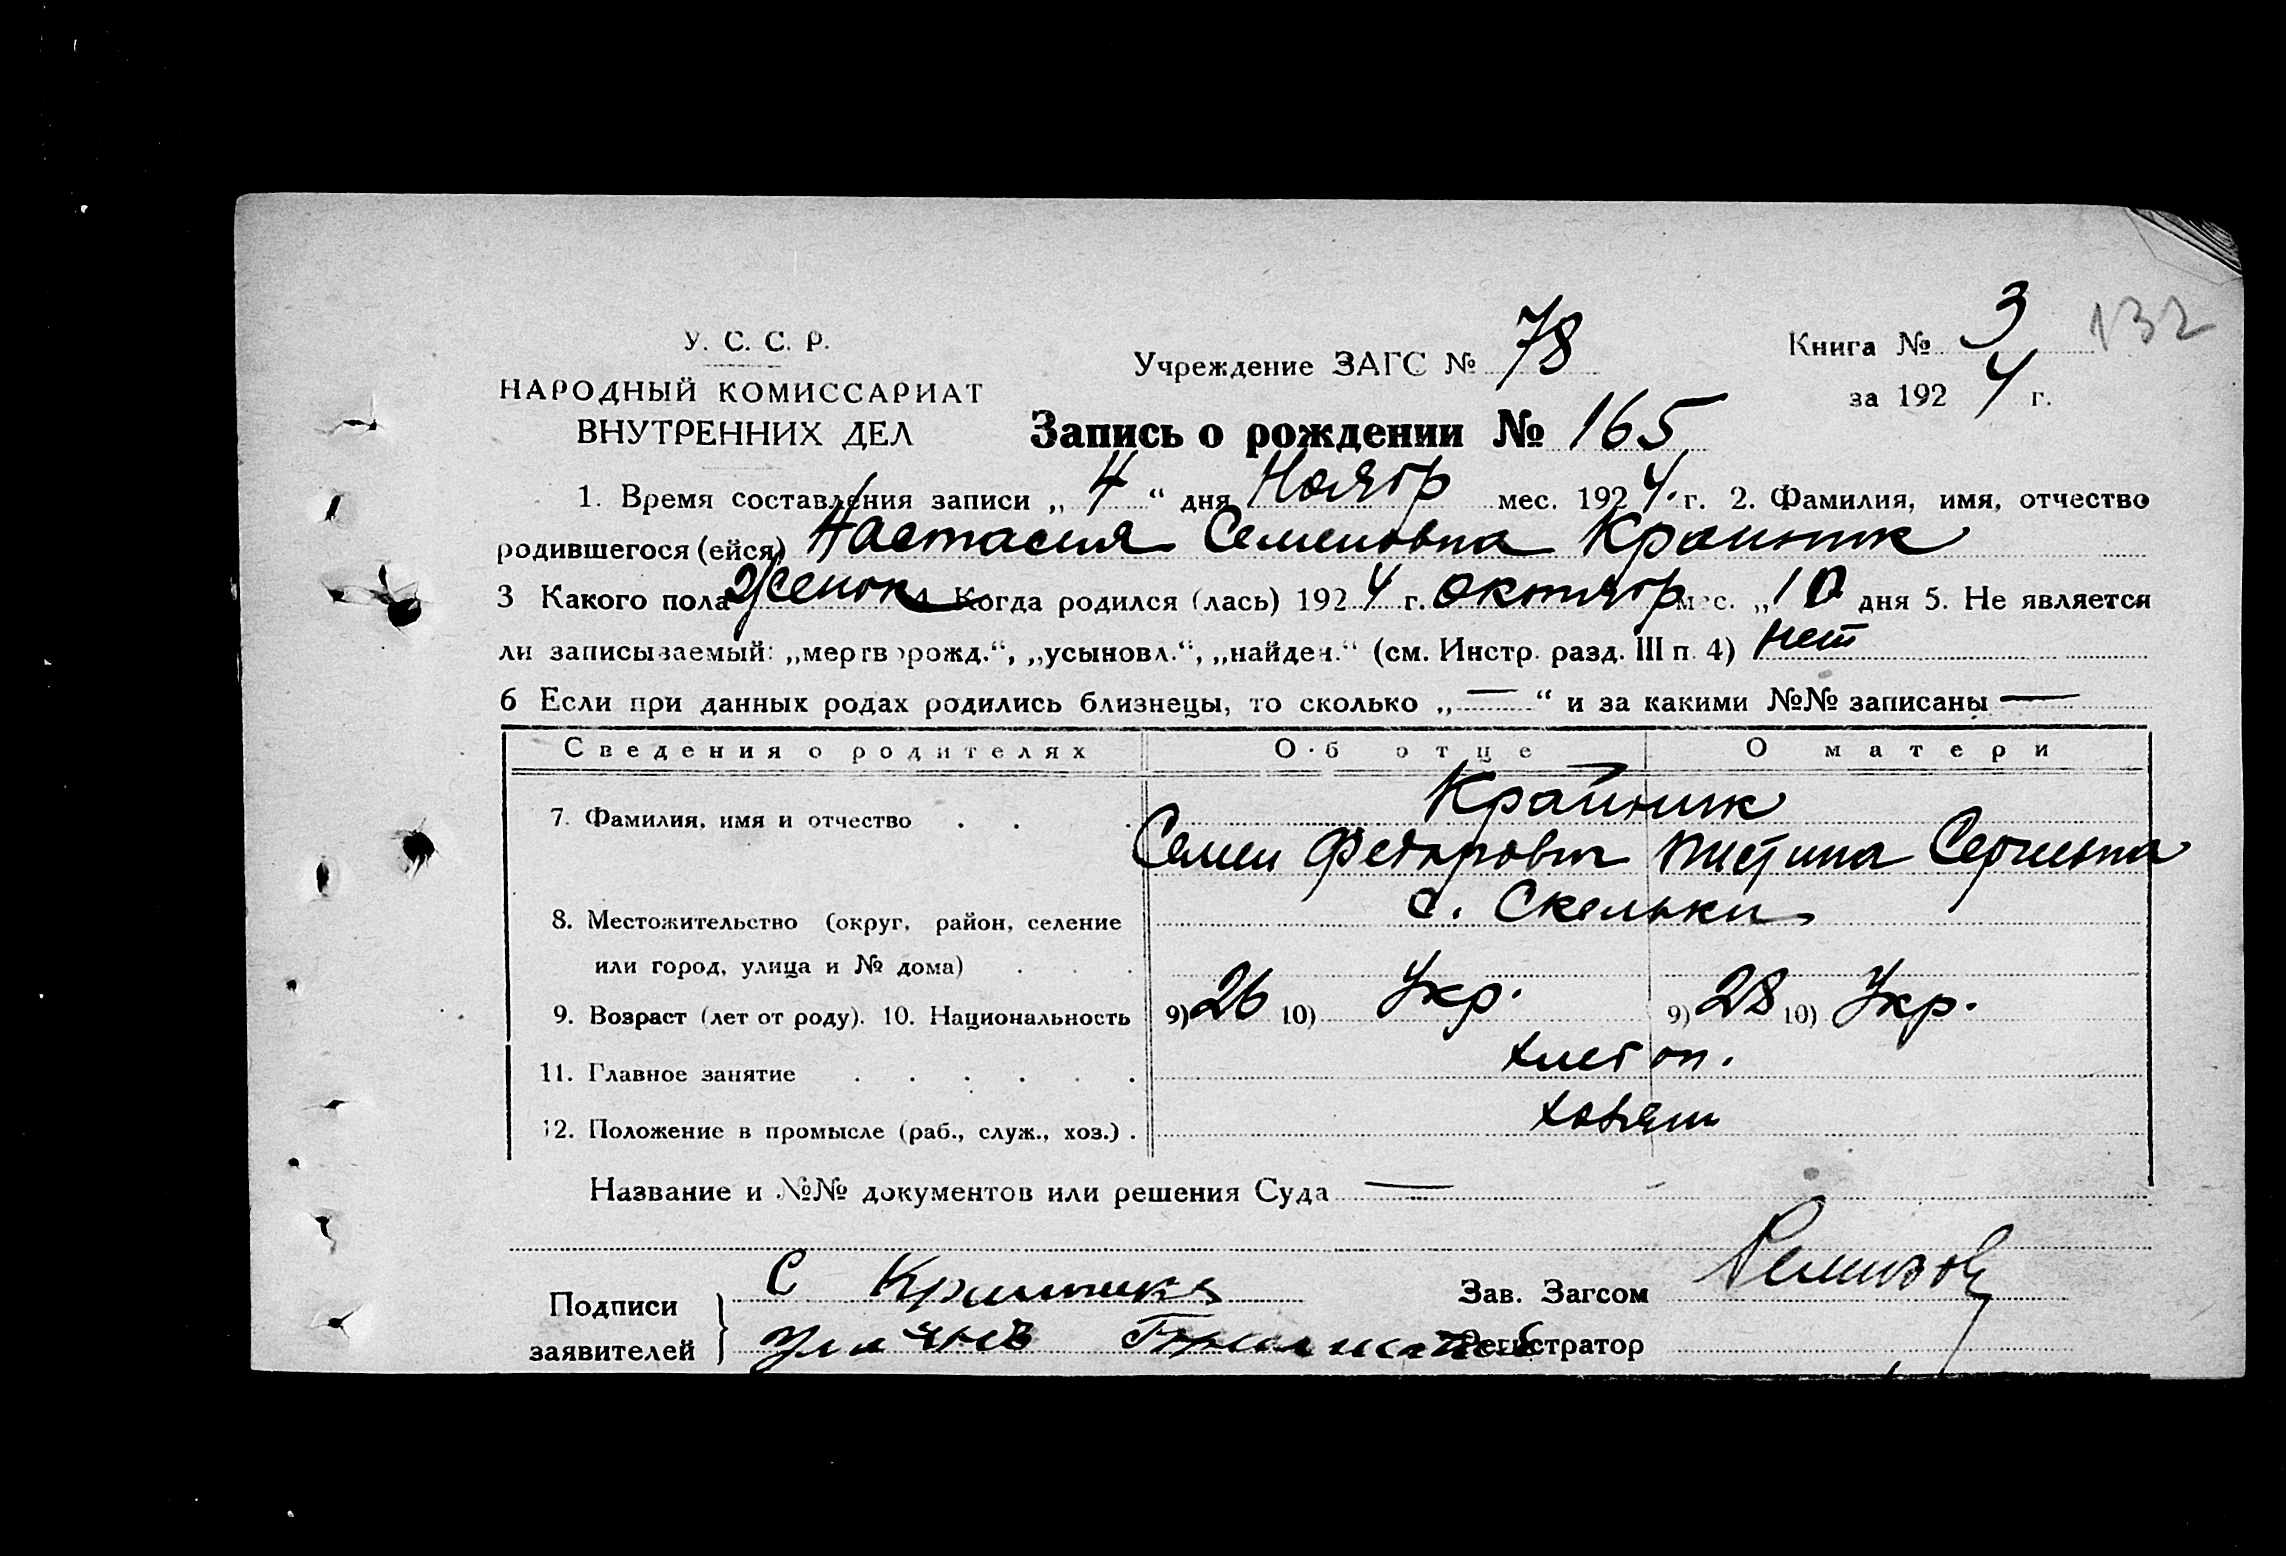 У. С. С. Р.
НАРОДНЫЙ КОМИССАРИАТ
ВНУТРЕННИХ ДЕЛ
Учреждение ЗАГС № 78
Книга № 3 132
за 1924 г.
Запись о рождении № 165
1. Время составления записи „ 4 “ дня Ноябр мес. 1924. г. 2. Фамилия, имя, отчество
родившегося (ейся) Настасия Семеновна Крайник
3 Какого пола женск 4. Когда родился (лась) 1924 г. октябр мес. „10 дня 5. Не является
ли записываемый: „мертворожд.“, „усыновл.“, „найден.“ (см. Инстр. разд. III п. 4) нет
6 Если при данных родах родились близнецы, то сколько „ — “ и за какими №№ записаны —
Сведения о родителях Об отце О матери
7. Фамилия, имя и отчество Крайник
Семен Федорович
8. Местожительство (округ, район, селение с. Скельки
или город, улица и № дома)
9. Возраст (лет от роду). 10. Национальность 9) 26 10) Укр. 9) 28 10) Укр.
11. Главное занятие хлебоп.
12. Положение в промысле (раб., служ., хоз.) хозяин
Название и №№ документов или решения Суда —
Подписи С
заявителей
Зав. Загсом Ремизов
Регистратор